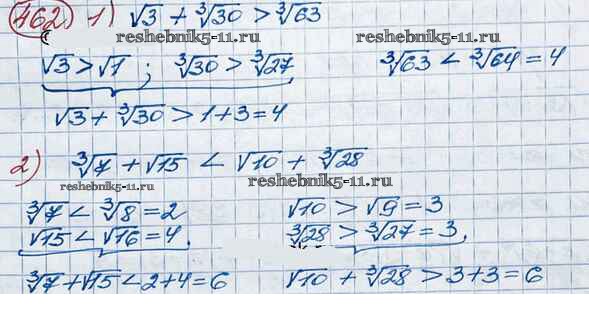 462) 1) √3 + ∛30 > ∛63
reshebnik5-11.ru reshebnik5-11.ru
√3 > √1 ; ∛30 > ∛27 ∛63 < ∛64 = 4
√3 + ∛30 > 1 + 3 = 4
2) ∛7 + √15 < √10 + ∛28
reshebnik5-11.ru reshebnik5-11.ru
∛7 < ∛8 = 2 √10 > √9 = 3
√15 < √16 = 4, ∛28 > ∛27 = 3,
∛7 + √15 < 2 + 4 = 6 √10 + ∛28 > 3 + 3 = 6